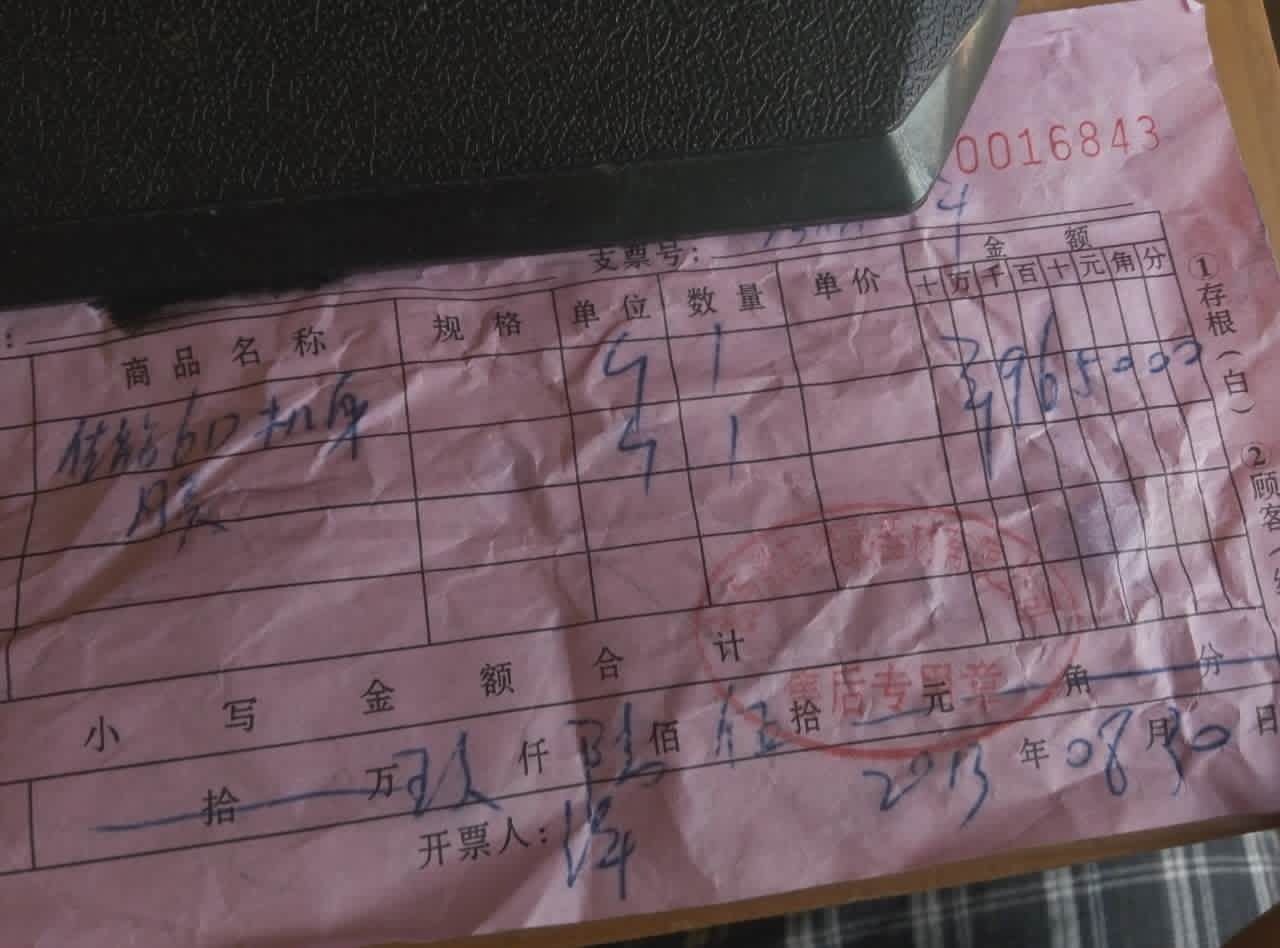 0016843
4
支票号：
商品名称 规格 单位 数量 单价 金额
十 万 千 百 十 元 角 分
佳能6D机身 1 965000
1
小写金额合计
拾 万 玖 仟 陆 佰 伍 拾 元 角 分
售后专用章
开票人：
2013 年 08 月 30 日
①存根（白）
②顾客（